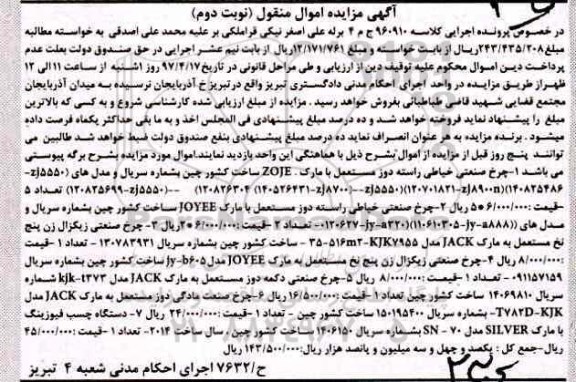 آگهی مزایده اموال منقول (نوبت دوم)
در خصوص پرونده اجرایی کلاسه ۹۶۰۹۱۰ ج م ۴ برله علی اصغر نیکی قراملکی بر علیه محمد علی اصدقی به خواسته مطالبه
مبلغ ۲۴۳/۴۳۵/۲۰۸ریال از بابت خواسته و مبلغ ۱۲/۱۷۱/۷۶۱ریال از بابت نیم عشر اجرایی در حق صندوق دولت بعلت عدم
پرداخت دین اموال محکوم علیه توقیف دین از ارزیابی و طی مراحل قانونی در تاریخ ۹۷/۴/۱۷ روز یکشنبه از ساعت ۱۱ الی ۱۲
ظهراز طریق مزایده در واحد اجرای احکام مدنی دادگستری تبریز واقع در تبریز خ آذربایجان نرسیده به میدان آذربایجان
مجتمع قضایی شهید قاضی طباطبائی بفروش خواهد رسید . مزایده از مبلغ ارزیابی شده کارشناسی شروع و به کسی که بالاترین
مبلغ را پیشنهاد نماید فروخته خواهد شد و ده درصد مبلغ پیشنهادی فی المجلس اخذ و به ما بقی حداکثر یکماه فرصت داده
میشود . برنده مزایده به هر عنوان انصراف نماید ده درصد مبلغ پیشنهادی بنفع صندوق دولت ضبط خواهد شد طالبین می
توانند پنج روز قبل از مزایده از اموال بشرح ذیل با هماهنگی این واحد بازدید نمایند.اموال مورد مزایده بشرح برگه پیوستی
می باشد ۱-چرخ صنعتی خیاطی راسته دوز مستعمل با مارک . ZOJE ساخت کشور چین بشماره سریال و مدل های (zj۵۵۵۰-
۱۴۰۸۲۵۴۸۶)(zj۸۹۰۰n-۱۲۰۷۰۱۸۲۱)(zj۵۵۵۰--)(zj۸۷۰۰-۱۴۰۵۲۶۴۳۱) (۱۲۰۸۲۶۳۰۴ --zj۵۵۵۰)(۱۲۰۸۲۵۶۹۹ تعداد ۵
-قیمت :۶/۰۰۰/۰۰۰*۵ ریال ۲-چرخ صنعتی خیاطی راسته دوز مستعمل با مارک JOYEE ساخت کشور چین بشماره سریال و
مدل های ((jy-a۸۸۸-۱۱۰۶۱۰۳۰۵)(jy-a۳۲۰-۱۲۰۶۲۷- تعداد ۲ -قیمت :۶/۰۰۰/۰۰۰*۲ریال ۳- چرخ صنعتی زیگزال زن پنج
نخ مستعمل به مارک JACK مدل ۳۵-۵۱۶m۲-KJK۷۹۵۵ - ساخت کشور چین بشماره سریال ۱۳۰۷۸۳۹۳۱ - تعداد ۱ -قیمت
:۸/۰۰۰/۰۰۰ ریال ۴-چرخ صنعتی زیگزال زن پنج نخ مستعمل به مارک JOYEE مدل jy-b۶۰۵ ساخت کشور چین بشماره سریال
۰۹۱۱۵۷۱۵۹ - تعداد ۱ -قیمت :۸/۰۰۰/۰۰۰ ریال ۵-چرخ صنعتی دکمه دوز مستعمل به مارک JACK مدل kjk-t۳۷۳ شماره
سریال ۱۴۰۶۹۸۱۰ ساخت کشور چین تعداد ۱ قیمت :۱۶/۵۰۰/۰۰۰ ریال ۶-چرخ صنعت مادگی دوز مستعمل به مارک JACK مدل
T۷۸۲D-KJK- بشماره سریال ۱۵۰۱۹۵۴۰۰ ساخت کشور چین - تعداد ۱ -قیمت :۲۴/۰۰۰/۰۰۰ ریال ۷- دستگاه چسب فیوزینگ
با مارک SILVER مدل ۷۰ - SN بشماره سریال ۱۴۰۶۱۵۰ ساخت کشور چین . سال ساخت ۲۰۱۴- تعداد ۱ -قیمت :۴۵/۰۰۰/۰۰۰
ریال-جمع کل : یکصد و چهل و سه میلیون و پانصد هزار ریال:۱۴۳/۵۰۰/۰۰۰ ریال
ح/۷۶۳۲ اجرای احکام مدنی شعبه ۴ تبریز